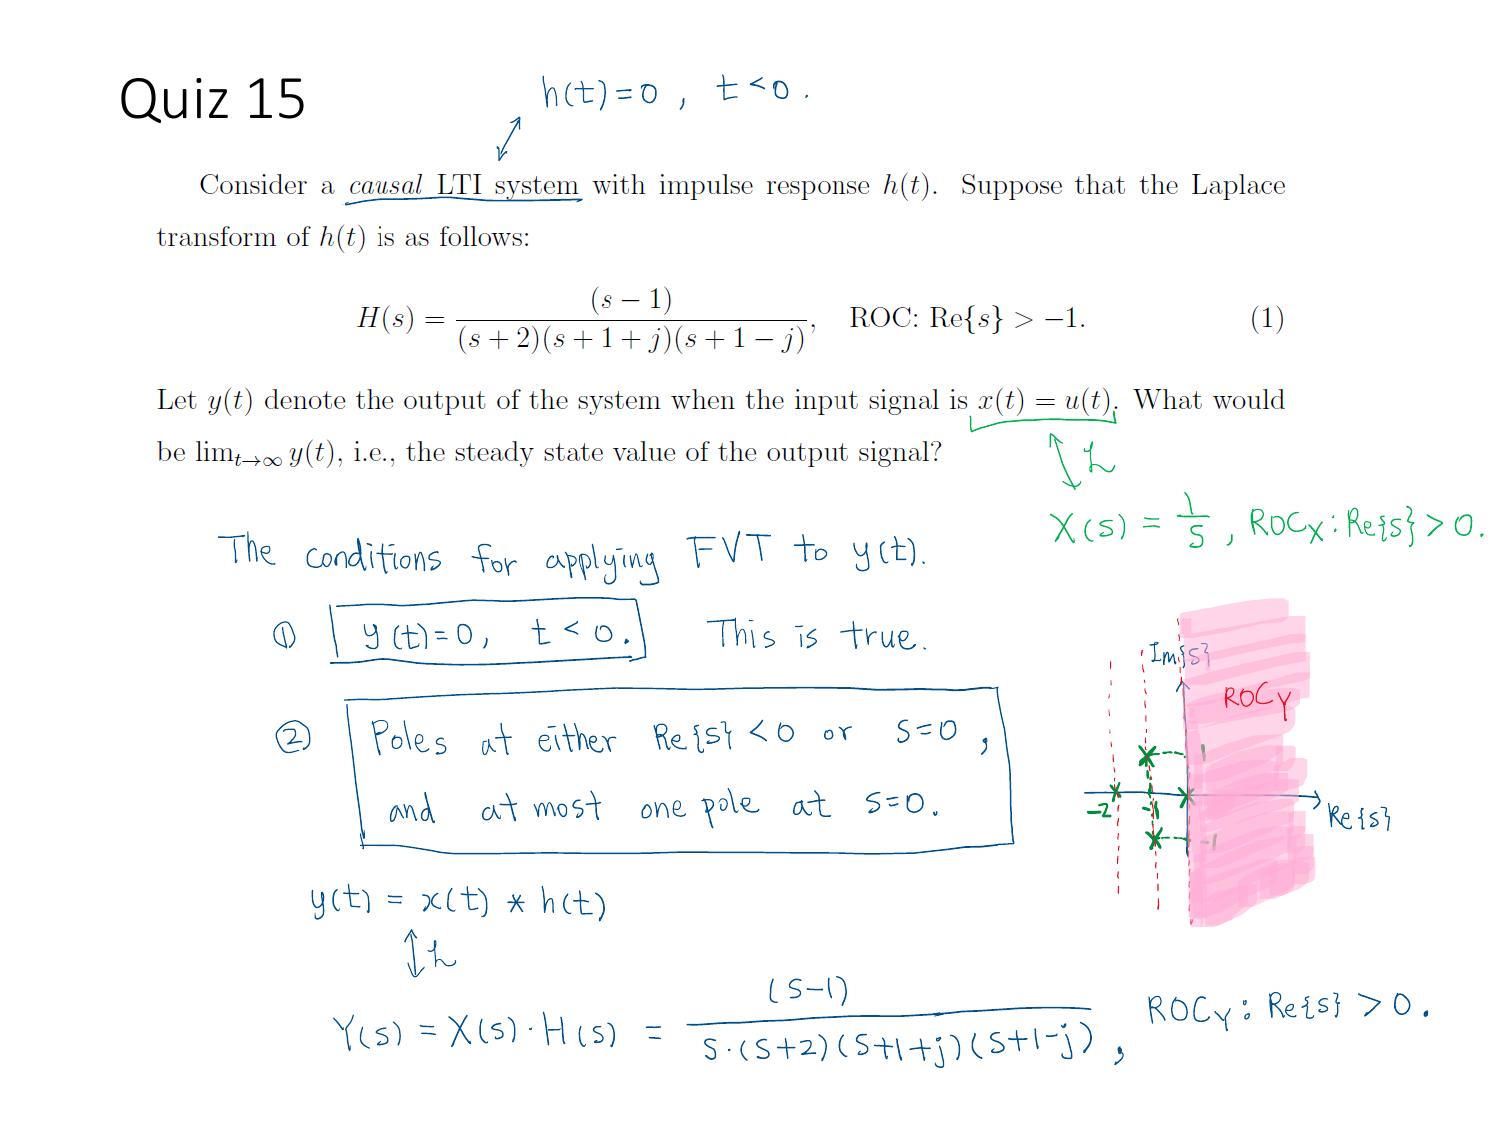 Quiz 15
h(t)=0, t<0.
Consider a causal LTI system with impulse response h(t). Suppose that the Laplace
transform of h(t) is as follows:
H(s) = (s − 1) / (s + 2)(s + 1 + j)(s + 1 − j), ROC: Re{s} > −1. (1)
Let y(t) denote the output of the system when the input signal is x(t) = u(t). What would
be lim_{t→∞} y(t), i.e., the steady state value of the output signal?
↕ L
X(s) = 1/s, ROC_X : Re{s} > 0.
The conditions for applying FVT to y(t).
① y(t)=0, t<0. This is true.
② Poles at either Re{s}<0 or s=0,
and at most one pole at s=0.
Im{s}
ROC_Y
1
-2 -1
Re{s}
-1
y(t) = x(t) * h(t)
↕ L
Y(s) = X(s)·H(s) = (s-1) / s·(s+2)(s+1+j)(s+1-j), ROC_Y : Re{s} > 0.